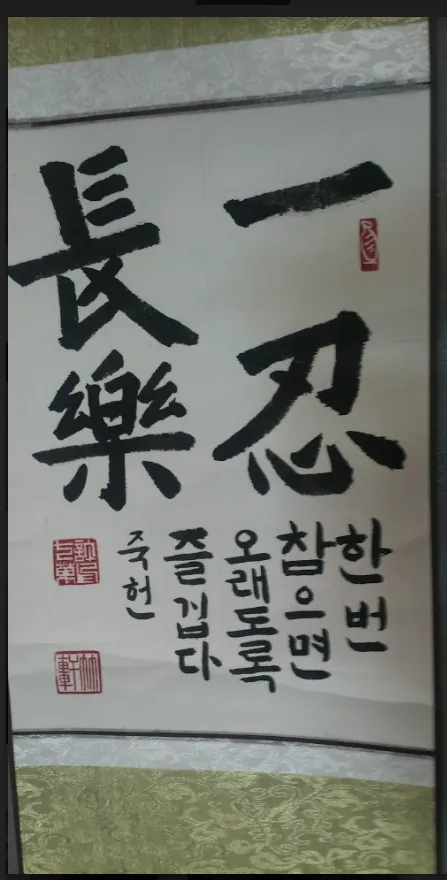 一忍
長樂
한번
참으면
오래도록
즐겁다
죽헌
竹軒